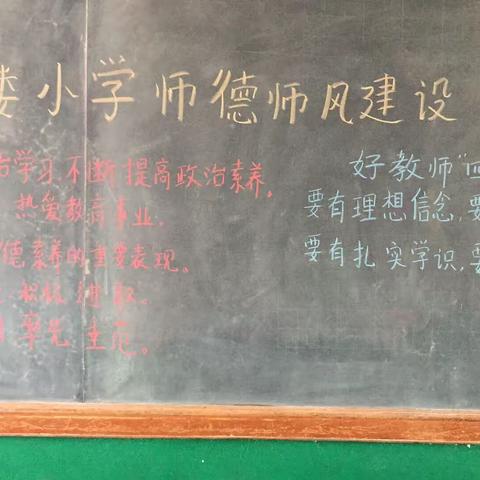 娄小学师德师风建设
治学习,不断提高政治素养。
热爱教育事业,
德素养的重要表现。
积极进取。
率先垂范。
好教师"四
要有理想信念,要
要有扎实学识,要